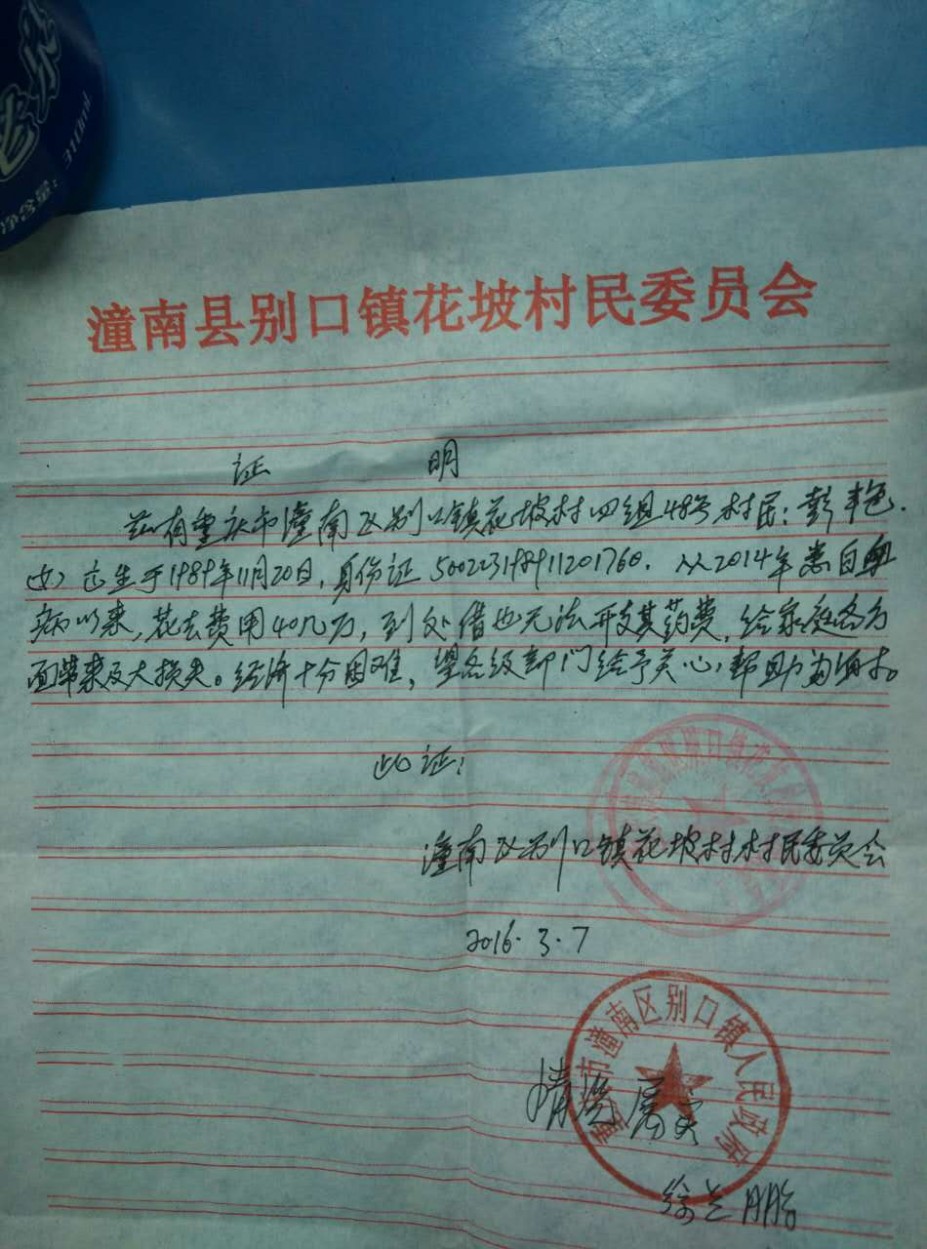 净含量: 310ml
潼南县别口镇花坡村民委员会
证 明
兹有重庆市潼南区别口镇花坡村四组48号村民:彭
(女)生于1989年11月20日,身份证500223198911201760.从2014年患白血
病以来,花去费用40几万,到处借也无法开支其药费,给家庭各方
面带来及大损失。经济十分困难,望各级部门给予关心,帮助为谢。
此证!
潼南区别口镇花坡村村民委员会
2016.3.7
重庆市潼南区别口镇人民政府
情况属实